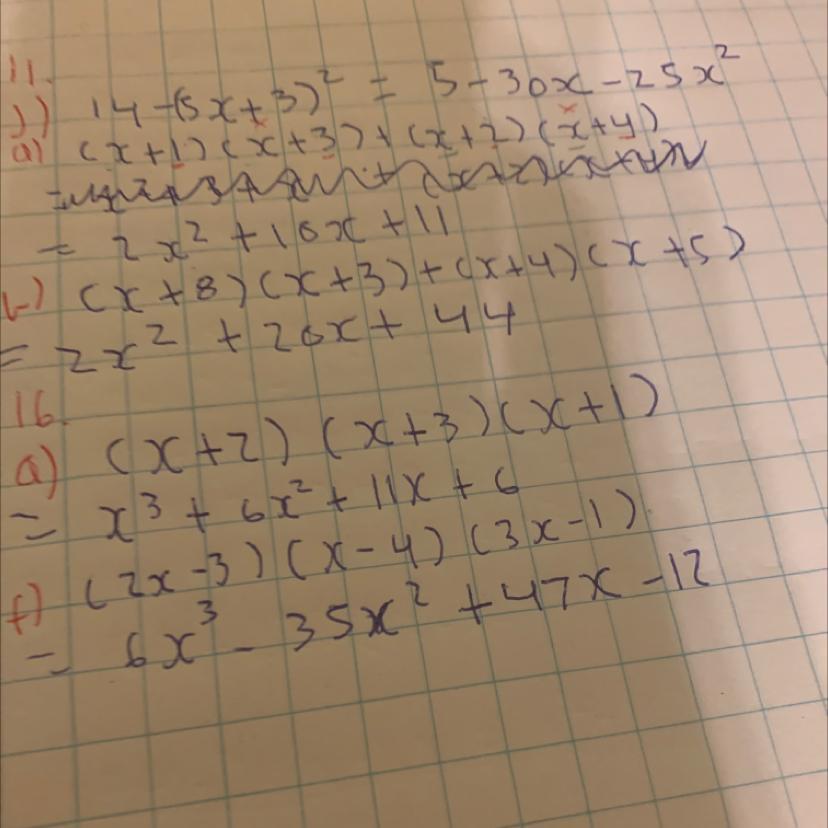 11.
j) 14-(5x+3)² = 5-30x-25x²
a) (x+1)(x+3)+(x+2)(x+4)
= 2x²+10x+11
b) (x+8)(x+3)+(x+4)(x+5)
= 2x²+20x+44
16.
a) (x+2)(x+3)(x+1)
= x³+6x²+11x+6
f) (2x-3)(x-4)(3x-1)
= 6x³-35x²+47x-12